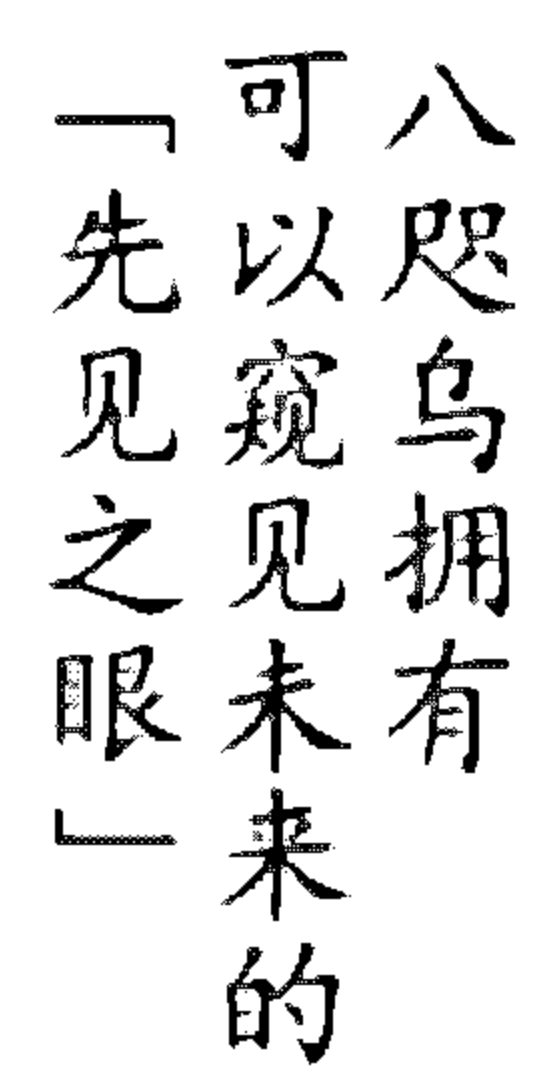 八咫乌拥有
可以窥见未来的
「先见之眼」